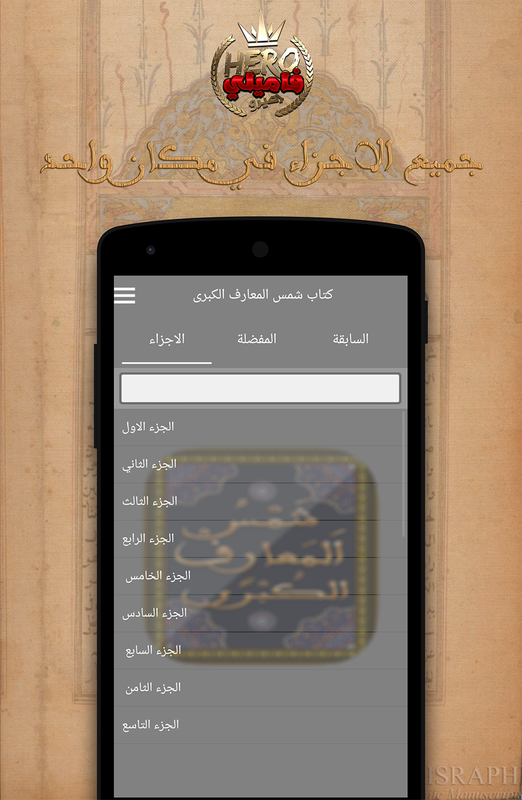 HERO
فاميلي
جميع الاجزاء في مكان واحد
كتاب شمس المعارف الكبرى
السابقة
المفضلة
الاجزاء
الجزء الاول
الجزء الثاني
الجزء الثالث
الجزء الرابع
الجزء الخامس
الجزء السادس
الجزء السابع
الجزء الثامن
الجزء التاسع
شمس
المعارف
الكبرى
ISRAPH
ic Manuscripts